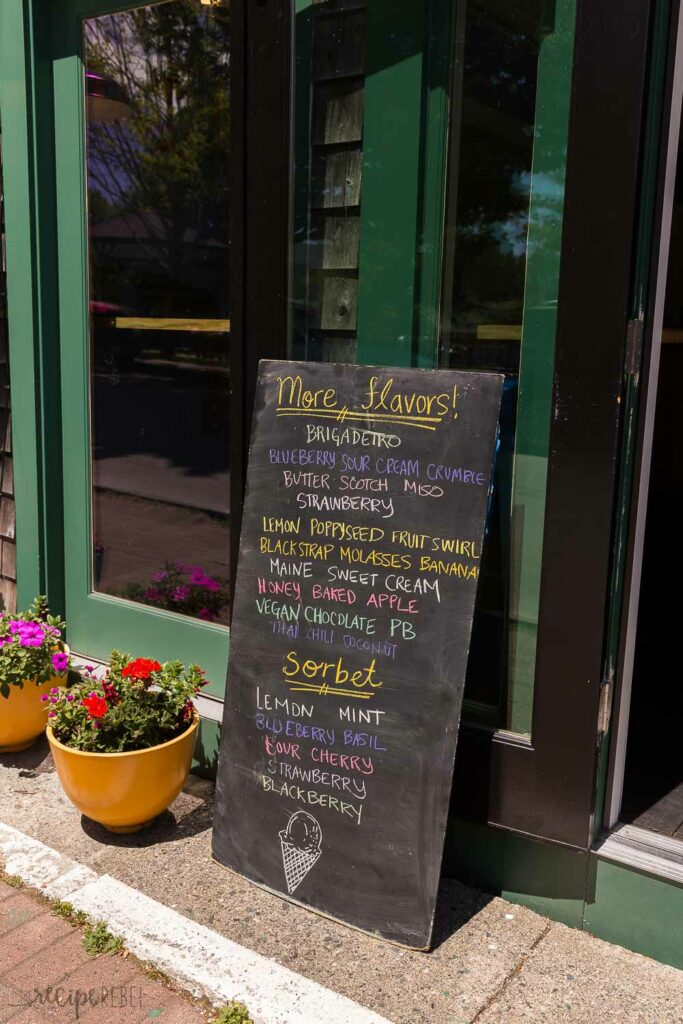 More flavors!
BRIGADEIRO
BLUEBERRY SOUR CREAM CRUMBLE
BUTTER SCOTCH MISO
STRAWBERRY
LEMON POPPYSEED FRUIT SWIRL
BLACKSTRAP MOLASSES BANANA
MAINE SWEET CREAM
HONEY BAKED APPLE
VEGAN CHOCLATE PB
THAI CHILI COCONUT
Sorbet
LEMON MINT
BLUEBERRY BASIL
SOUR CHERRY
STRAWBERRY
BLACKBERRY
the recipe REBEL